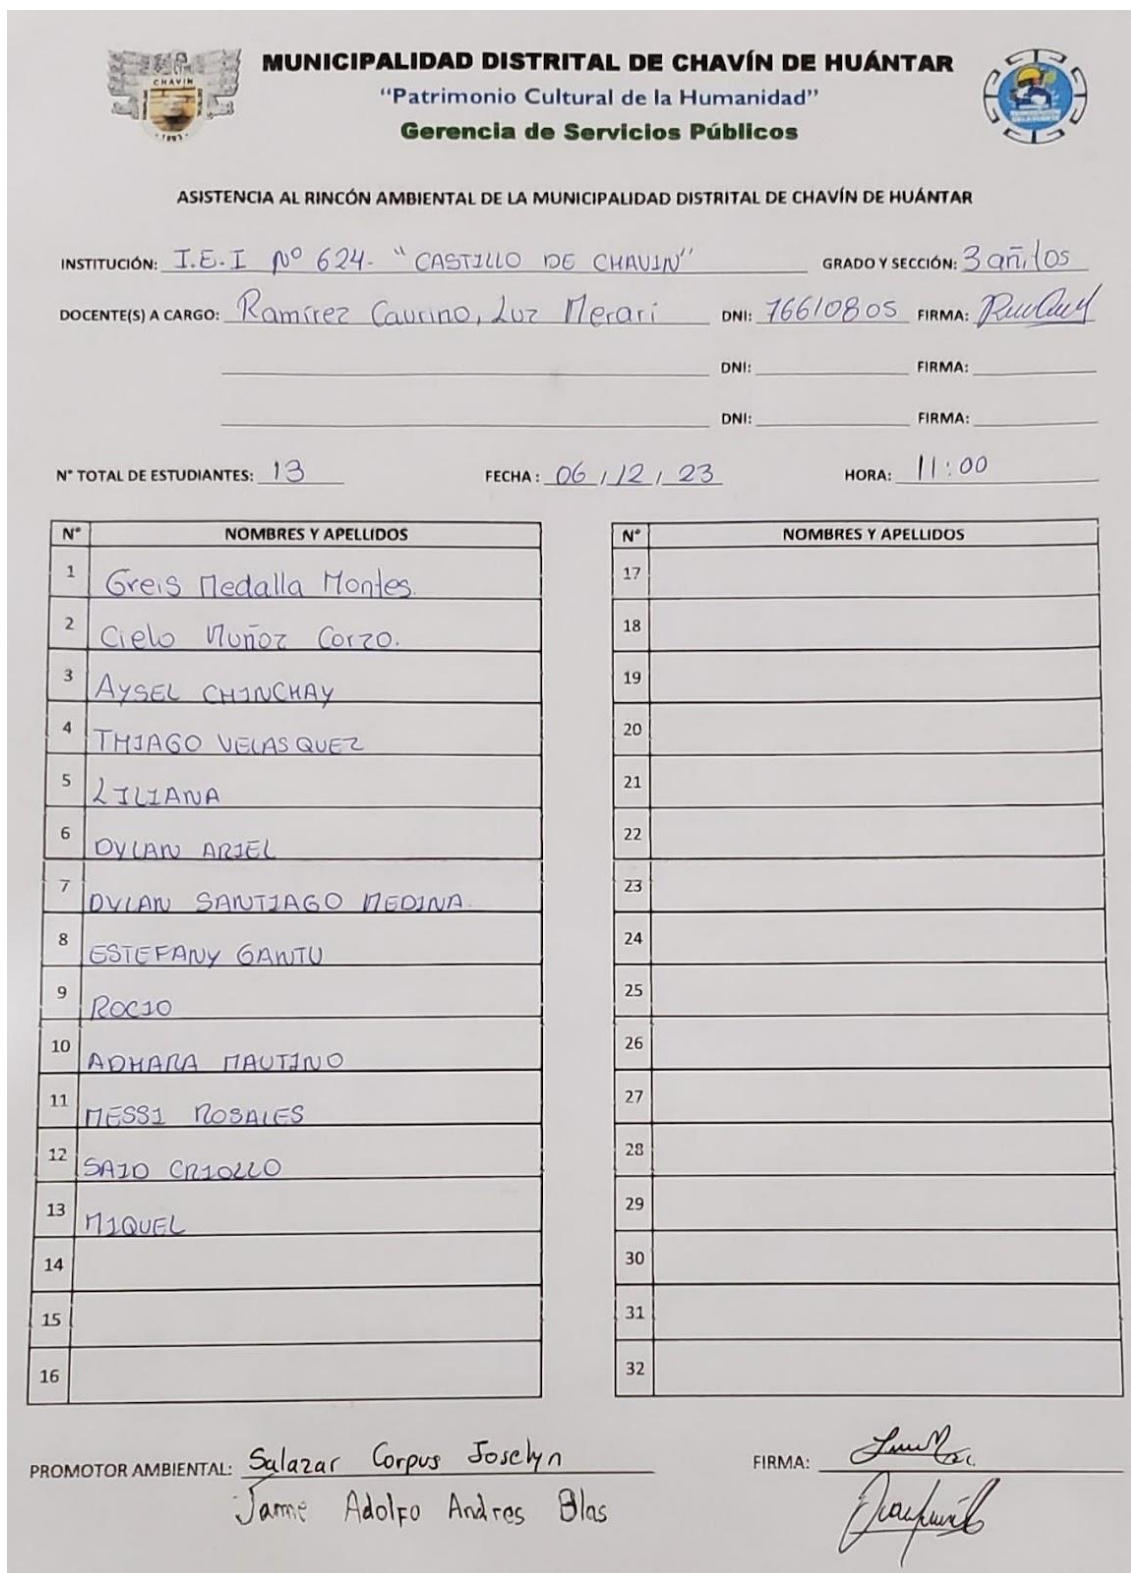 CHAVIN
1593
MUNICIPALIDAD DISTRITAL DE CHAVÍN DE HUÁNTAR
“Patrimonio Cultural de la Humanidad”
Gerencia de Servicios Públicos
ASISTENCIA AL RINCÓN AMBIENTAL DE LA MUNICIPALIDAD DISTRITAL DE CHAVÍN DE HUÁNTAR
INSTITUCIÓN: I.E.I Nº 624. "CASTILLO DE CHAVIN" GRADO Y SECCIÓN: 3 añitos
DOCENTE(S) A CARGO: Ramírez Caurino, Luz Merari DNI: 76610805 FIRMA:
DNI: FIRMA:
DNI: FIRMA:
N° TOTAL DE ESTUDIANTES: 13 FECHA: 06/12/23 HORA: 11:00
N° NOMBRES Y APELLIDOS
1 Greis Medalla Montes.
2 Cielo Muñoz Corzo.
3 AYSEL CHINCHAY
4 THIAGO VELASQUEZ
5 LILIANA
6 DYLAN ARIEL
7 DYLAN SANTIAGO MEDINA.
8 ESTEFANY GANTU
9 ROCIO
10 ADHARA MAUTINO
11 MESSI ROSALES
12 SAID CRIOLLO
13 MIQUEL
14
15
16
N° NOMBRES Y APELLIDOS
17
18
19
20
21
22
23
24
25
26
27
28
29
30
31
32
PROMOTOR AMBIENTAL: Salazar Corpus Joselyn FIRMA:
Jaime Adolfo Andres Blas